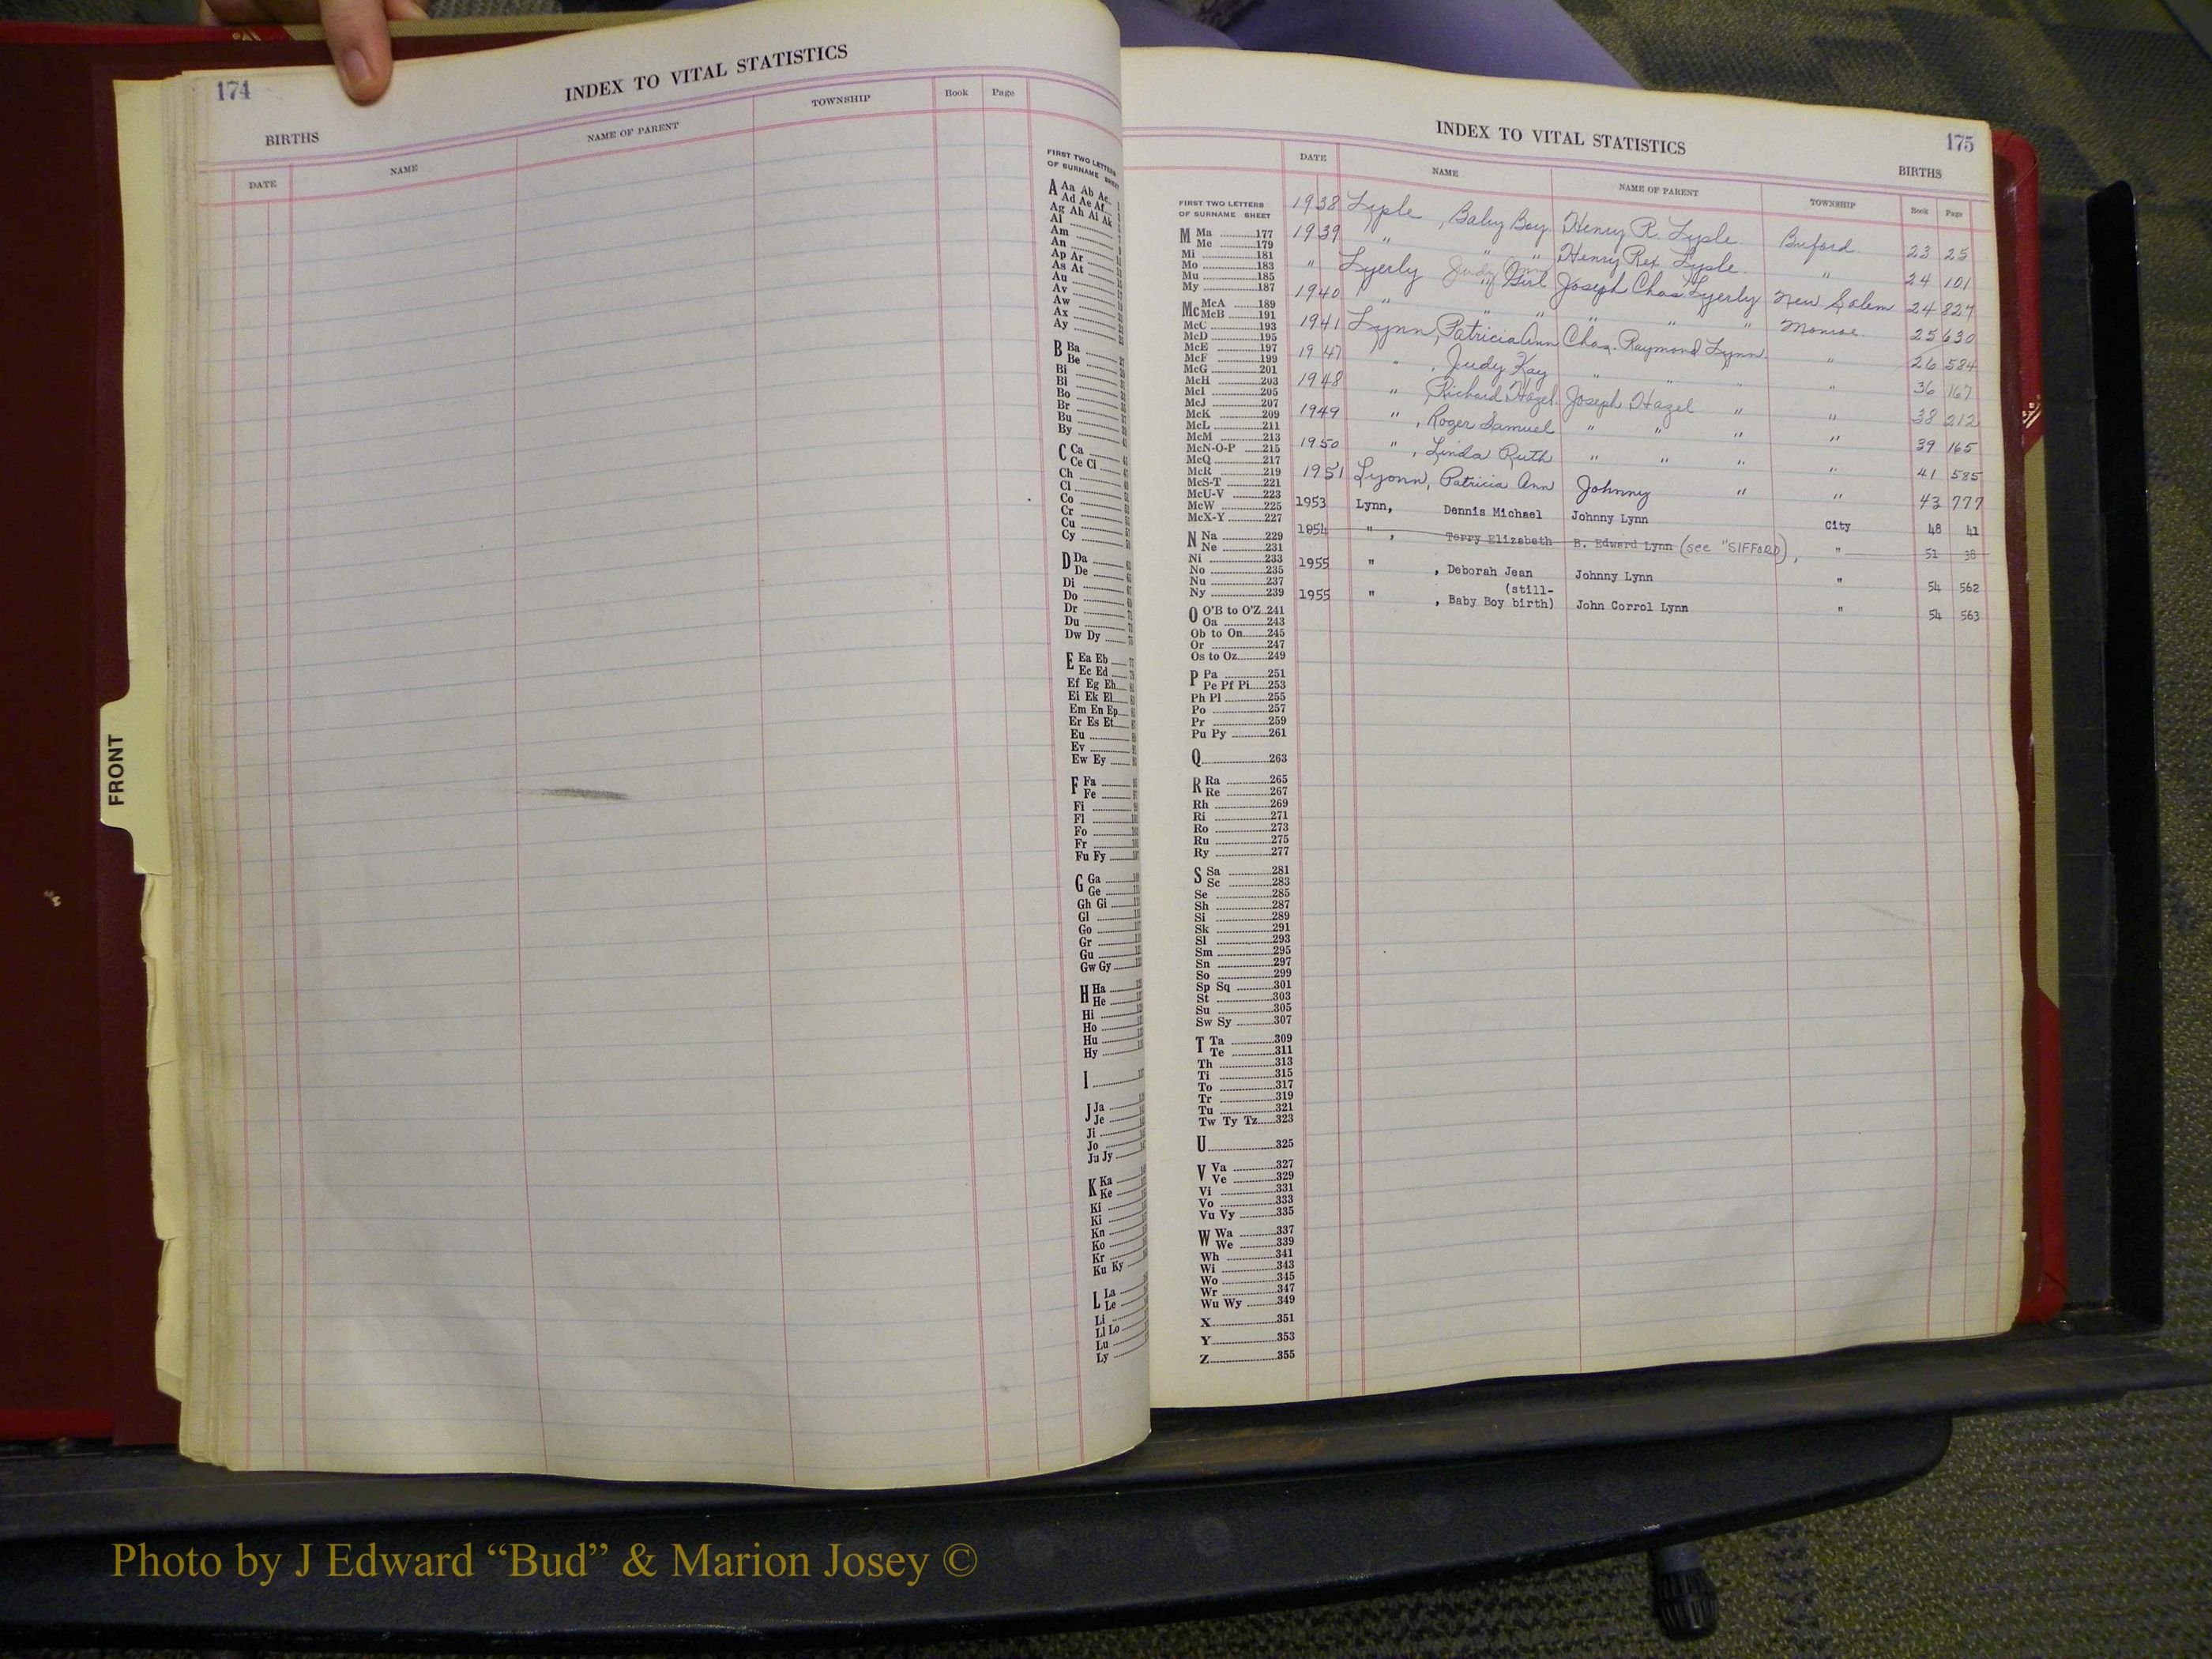 174
INDEX TO VITAL STATISTICS
BIRTHS
DATE NAME NAME OF PARENT TOWNSHIP Book Page
FIRST TWO LETTERS
OF SURNAME SHEET
A Aa Ab Ac
Ad Ae Af
Ag Ah Ai Ak
Al
Am
An
Ap Ar
As At
Au
Av
Aw
Ax
Ay
B Ba
Be
Bi
Bl
Bo
Br
Bu
By
C Ca
Ce Ci
Ch
Cl
Co
Cr
Cu
Cy
D Da
De
Di
Do
Dr
Du
Dw Dy
E Ea Eb
Ec Ed
Ef Eg Eh
Ei Ek El
Em En Ep
Er Es Et
Eu
Ev
Ew Ey
F Fa
Fe
Fi
Fl
Fo
Fr
Fu Fy
G Ga
Ge
Gh Gi
Gl
Go
Gr
Gu
Gw Gy
H Ha
He
Hi
Ho
Hu
Hy
I
J Ja
Je
Ji
Jo
Ju Jy
K Ka
Ke
Ki
Kn
Ko
Kr
Ku Ky
L La
Le
Li
Ll Lo
Lu
Ly
FRONT
INDEX TO VITAL STATISTICS
175
BIRTHS
DATE NAME NAME OF PARENT TOWNSHIP Book Page
FIRST TWO LETTERS
OF SURNAME SHEET
M Ma 177
Me 179
Mi 181
Mo 183
Mu 185
My 187
Mc McA 189
McB 191
McC 193
McD 195
McE 197
McF 199
McG 201
McH 203
McI 205
McJ 207
McK 209
McL 211
McM 213
McN-O-P 215
McQ 217
McR 219
McS-T 221
McU-V 223
McW 225
McX-Y 227
N Na 229
Ne 231
Ni 233
No 235
Nu 237
Ny 239
O O'B to O'Z 241
Oa 243
Ob to On 245
Or 247
Os to Oz 249
P Pa 251
Pe Pf Pi 253
Ph Pl 255
Po 257
Pr 259
Pu Py 261
Q 263
R Ra 265
Re 267
Rh 269
Ri 271
Ro 273
Ru 275
Ry 277
S Sa 281
Sc 283
Se 285
Sh 287
Si 289
Sk 291
Sl 293
Sm 295
Sn 297
So 299
Sp Sq 301
St 303
Su 305
Sw Sy 307
T Ta 309
Te 311
Th 313
Ti 315
To 317
Tr 319
Tu 321
Tw Ty Tz 323
U 325
V Va 327
Ve 329
Vi 331
Vo 333
Vu Vy 335
W Wa 337
We 339
Wh 341
Wi 343
Wo 345
Wr 347
Wu Wy 349
X 351
Y 353
Z 355
1938 Lyple, Baby Boy Henry R. Lyple Buford 23 25
1939 " " " Henry Rex Lyple " 24 101
" Lyerly Judy " Girl Joseph Chas. Lyerly New Salem 24 827
1940 " " " " " " Monroe 25 630
1941 Lynn, Patricia Ann Chas. Raymond Lynn " 26 584
1947 " , Judy Kay " " " " 36 167
1948 " , Richard Hazel Joseph Hazel " " 38 212
1949 " , Roger Samuel " " " " 39 165
1950 " , Linda Ruth " " " " 41 585
1951 Lyonn, Patricia Ann Johnny " " 43 777
1953 Lynn, Dennis Michael Johnny Lynn City 48 41
1954 " , Terry Elizabeth B. Edward Lynn (see "SIFFORD), " 51 38
1955 " , Deborah Jean Johnny Lynn " 54 562
1955 " , Baby Boy (still-birth) John Corrol Lynn " 54 563
Photo by J Edward “Bud” & Marion Josey ©